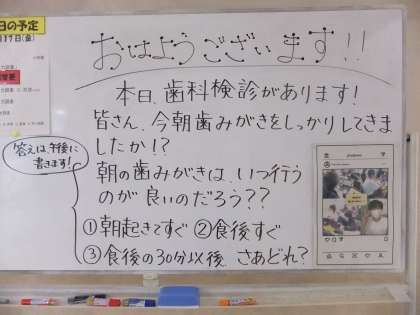 日の予定
17日(金)
おはようございます!!
本日、歯科検診があります!
皆さん、今朝歯みがきをしっかりしてきま
したか!?
答えは午後に
書きます!
朝の歯みがきは、いつ行う
のが良いのだろう??
①朝起きてすぐ ②食後すぐ
③食後の30分以後 さあどれ?